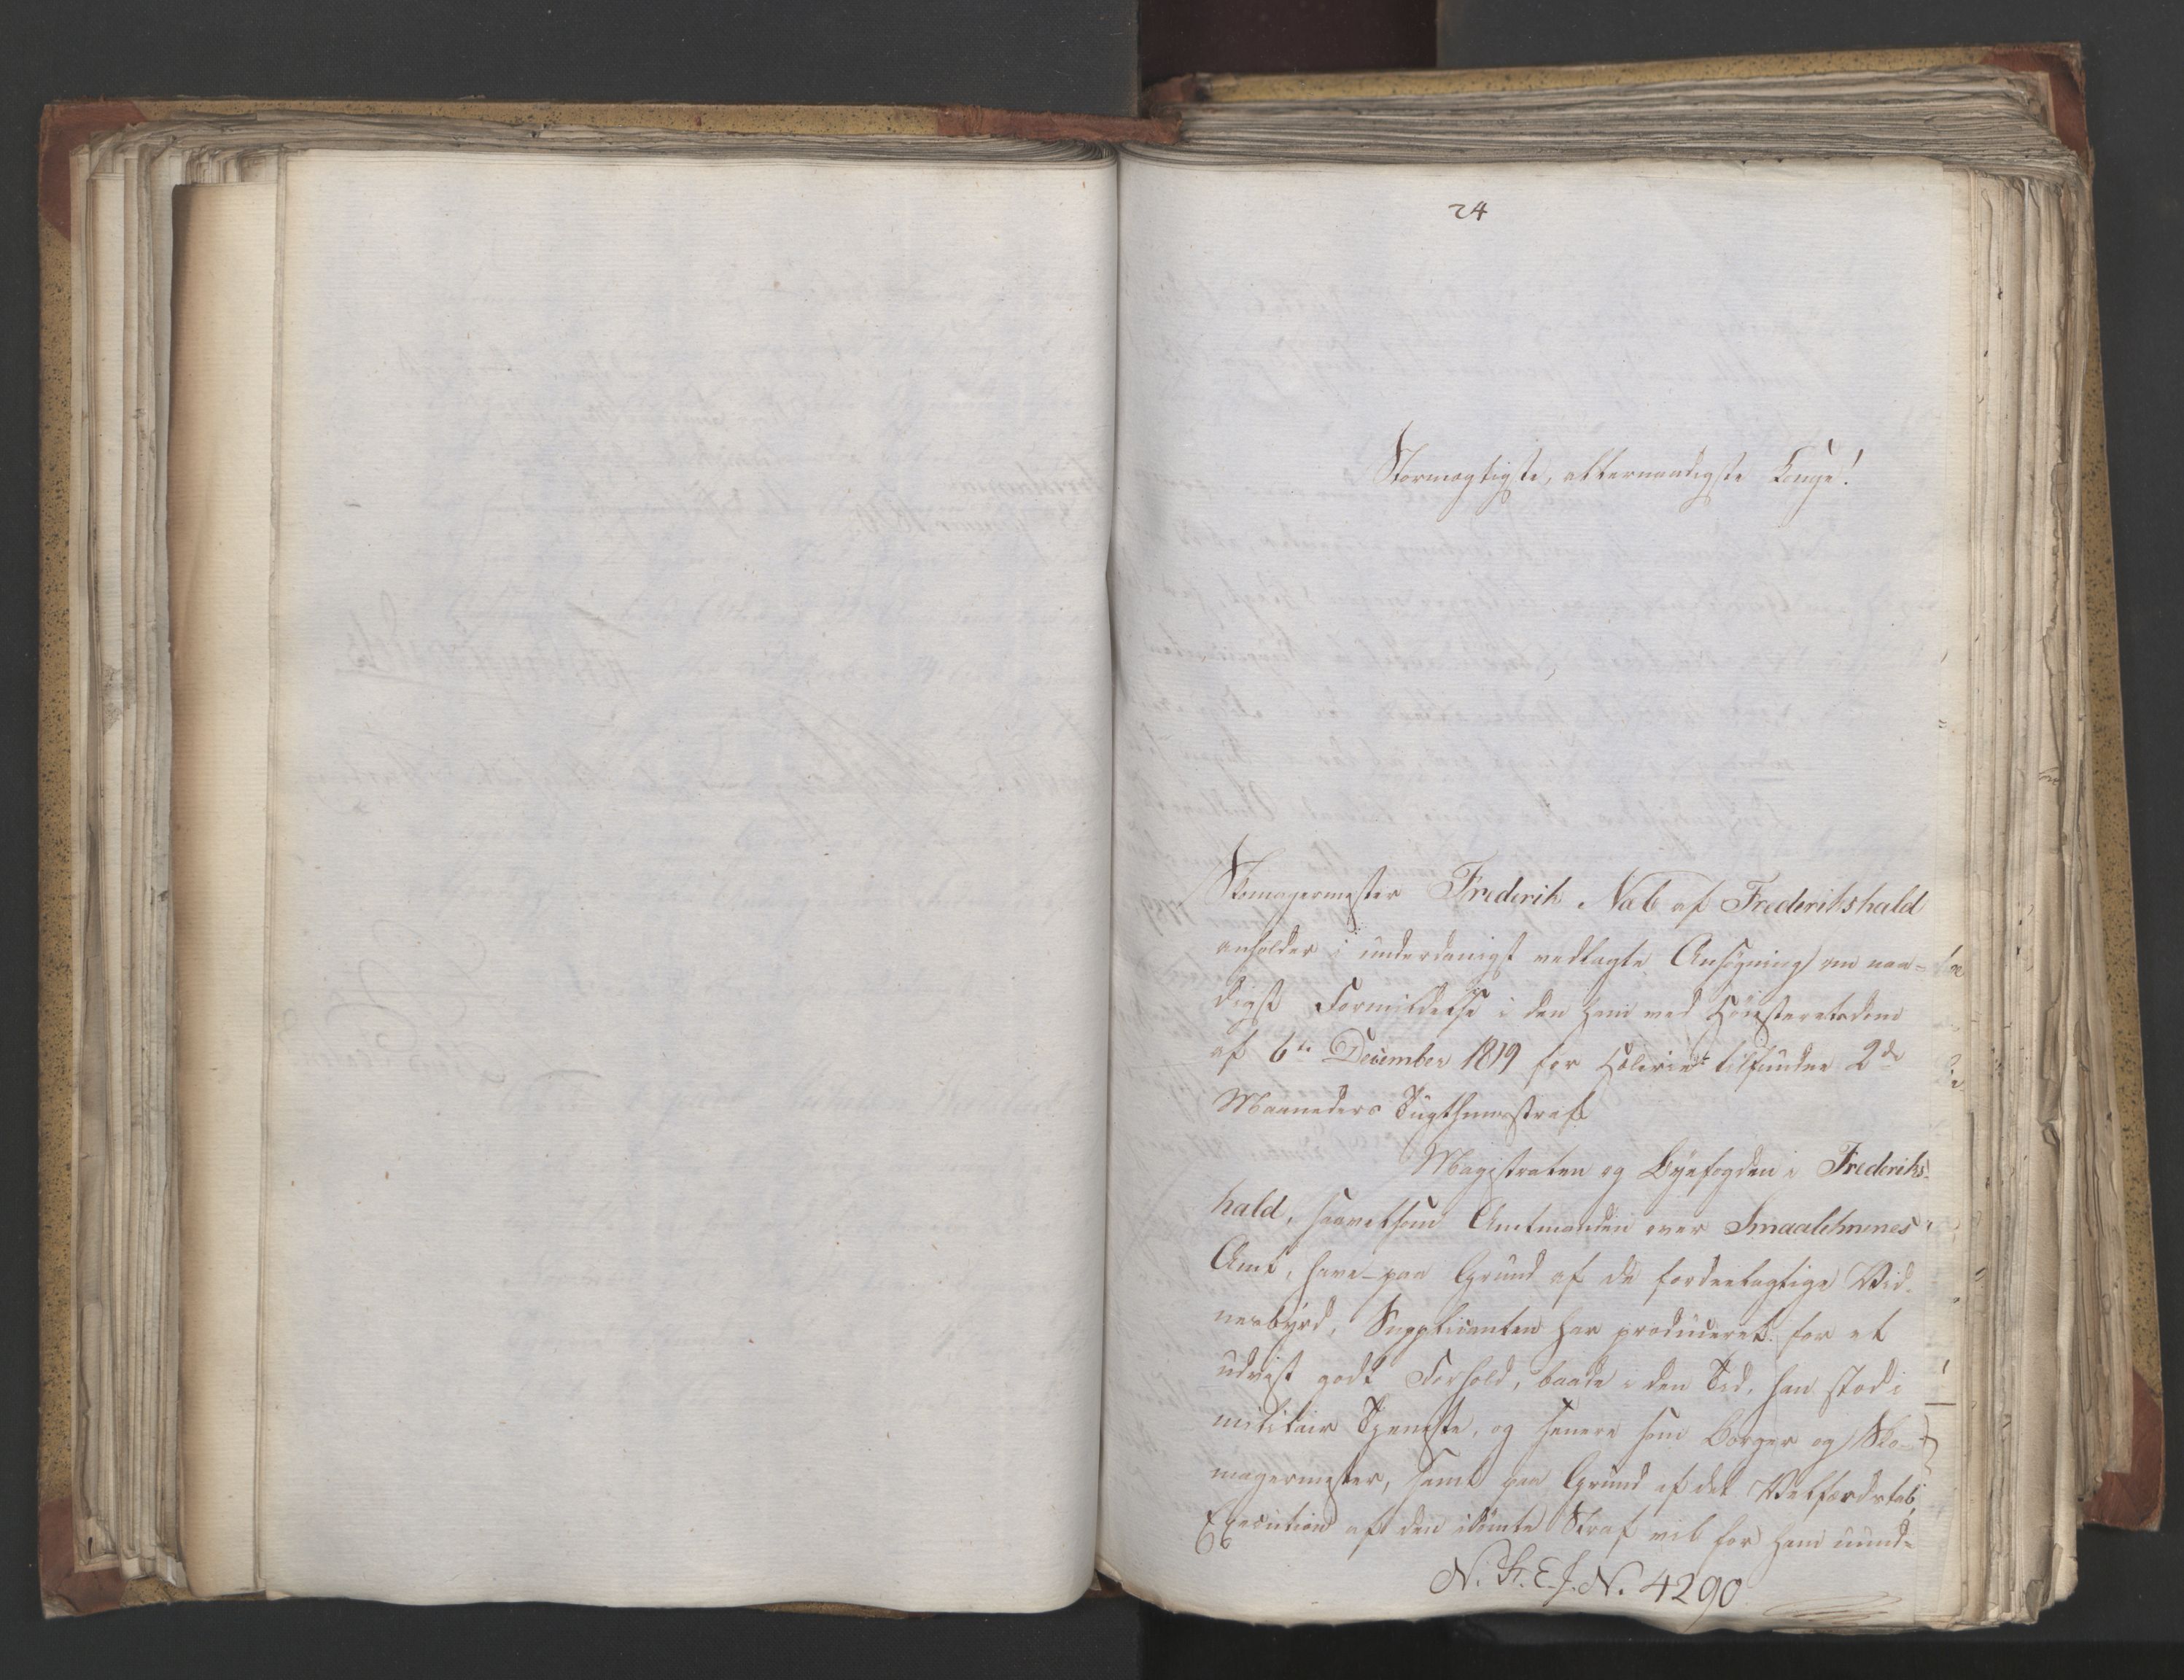 24
Stormægtigste, allernaadigste Konge!
Skomagermester Frederik Nab af Frederikshald
anholder i underdanigst vedlagte Ansøgning om naa-
digst Formildelse i den ham ved Høiesteretsdom
af 6te December 1819 for Hæleriet tilfundne 2de
Maaneders Tugthuusstraf.
Magistraten og Byefogden i Frederiks-
hald, saavelsom Amtmanden over Smaalehnenes
Amt, have paa Grund af de fordeelagtige Vid-
nesbyrd, Supplicanten har produceret for et
udviist godt Forhold, baade i den Tid, han stod i
militair Tjeneste, og senere som Borger og Sko-
magermester, samt paa Grund af det Velfærdstab,
Execution af den idømte Straf vil for ham uund-
N. St. E. J. N. 4290